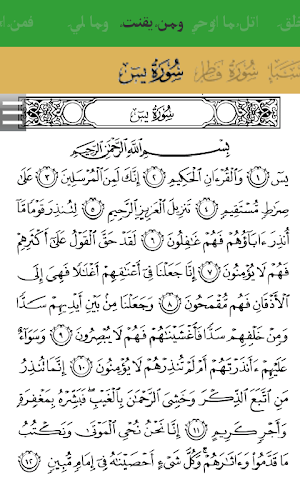 خلق. اتل،ما اوحي ومن،يقنت وما لي
سُورَةُ فَاطِر سُورَةُ يسٓ
سُورَةُ يسٓ
بِسْمِ اللَّهِ الرَّحْمَٰنِ الرَّحِيمِ
يسٓ ١ وَالْقُرْءَانِ الْحَكِيمِ ٢ إِنَّكَ لَمِنَ الْمُرْسَلِينَ ٣ عَلَىٰ
صِرَٰطٍ مُّسْتَقِيمٍ ٤ تَنزِيلَ الْعَزِيزِ الرَّحِيمِ ٥ لِتُنذِرَ قَوْمًا مَّا
أُنذِرَ ءَابَآؤُهُمْ فَهُمْ غَٰفِلُونَ ٦ لَقَدْ حَقَّ الْقَوْلُ عَلَىٰٓ أَكْثَرِهِمْ
فَهُمْ لَا يُؤْمِنُونَ ٧ إِنَّا جَعَلْنَا فِىٓ أَعْنَٰقِهِمْ أَغْلَٰلًا فَهِىَ إِلَى
الْأَذْقَانِ فَهُم مُّقْمَحُونَ ٨ وَجَعَلْنَا مِنۢ بَيْنِ أَيْدِيهِمْ سَدًّا
وَمِنْ خَلْفِهِمْ سَدًّا فَأَغْشَيْنَٰهُمْ فَهُمْ لَا يُبْصِرُونَ ٩ وَسَوَآءٌ
عَلَيْهِمْ ءَأَنذَرْتَهُمْ أَمْ لَمْ تُنذِرْهُمْ لَا يُؤْمِنُونَ ١٠ إِنَّمَا تُنذِرُ
مَنِ اتَّبَعَ الذِّكْرَ وَخَشِىَ الرَّحْمَٰنَ بِالْغَيْبِ ۖ فَبَشِّرْهُ بِمَغْفِرَةٍ
وَأَجْرٍ كَرِيمٍ ١١ إِنَّا نَحْنُ نُحْىِ الْمَوْتَىٰ وَنَكْتُبُ
مَا قَدَّمُوا۟ وَءَاثَٰرَهُمْ ۚ وَكُلَّ شَىْءٍ أَحْصَيْنَٰهُ فِىٓ إِمَامٍ مُّبِينٍ ١٢